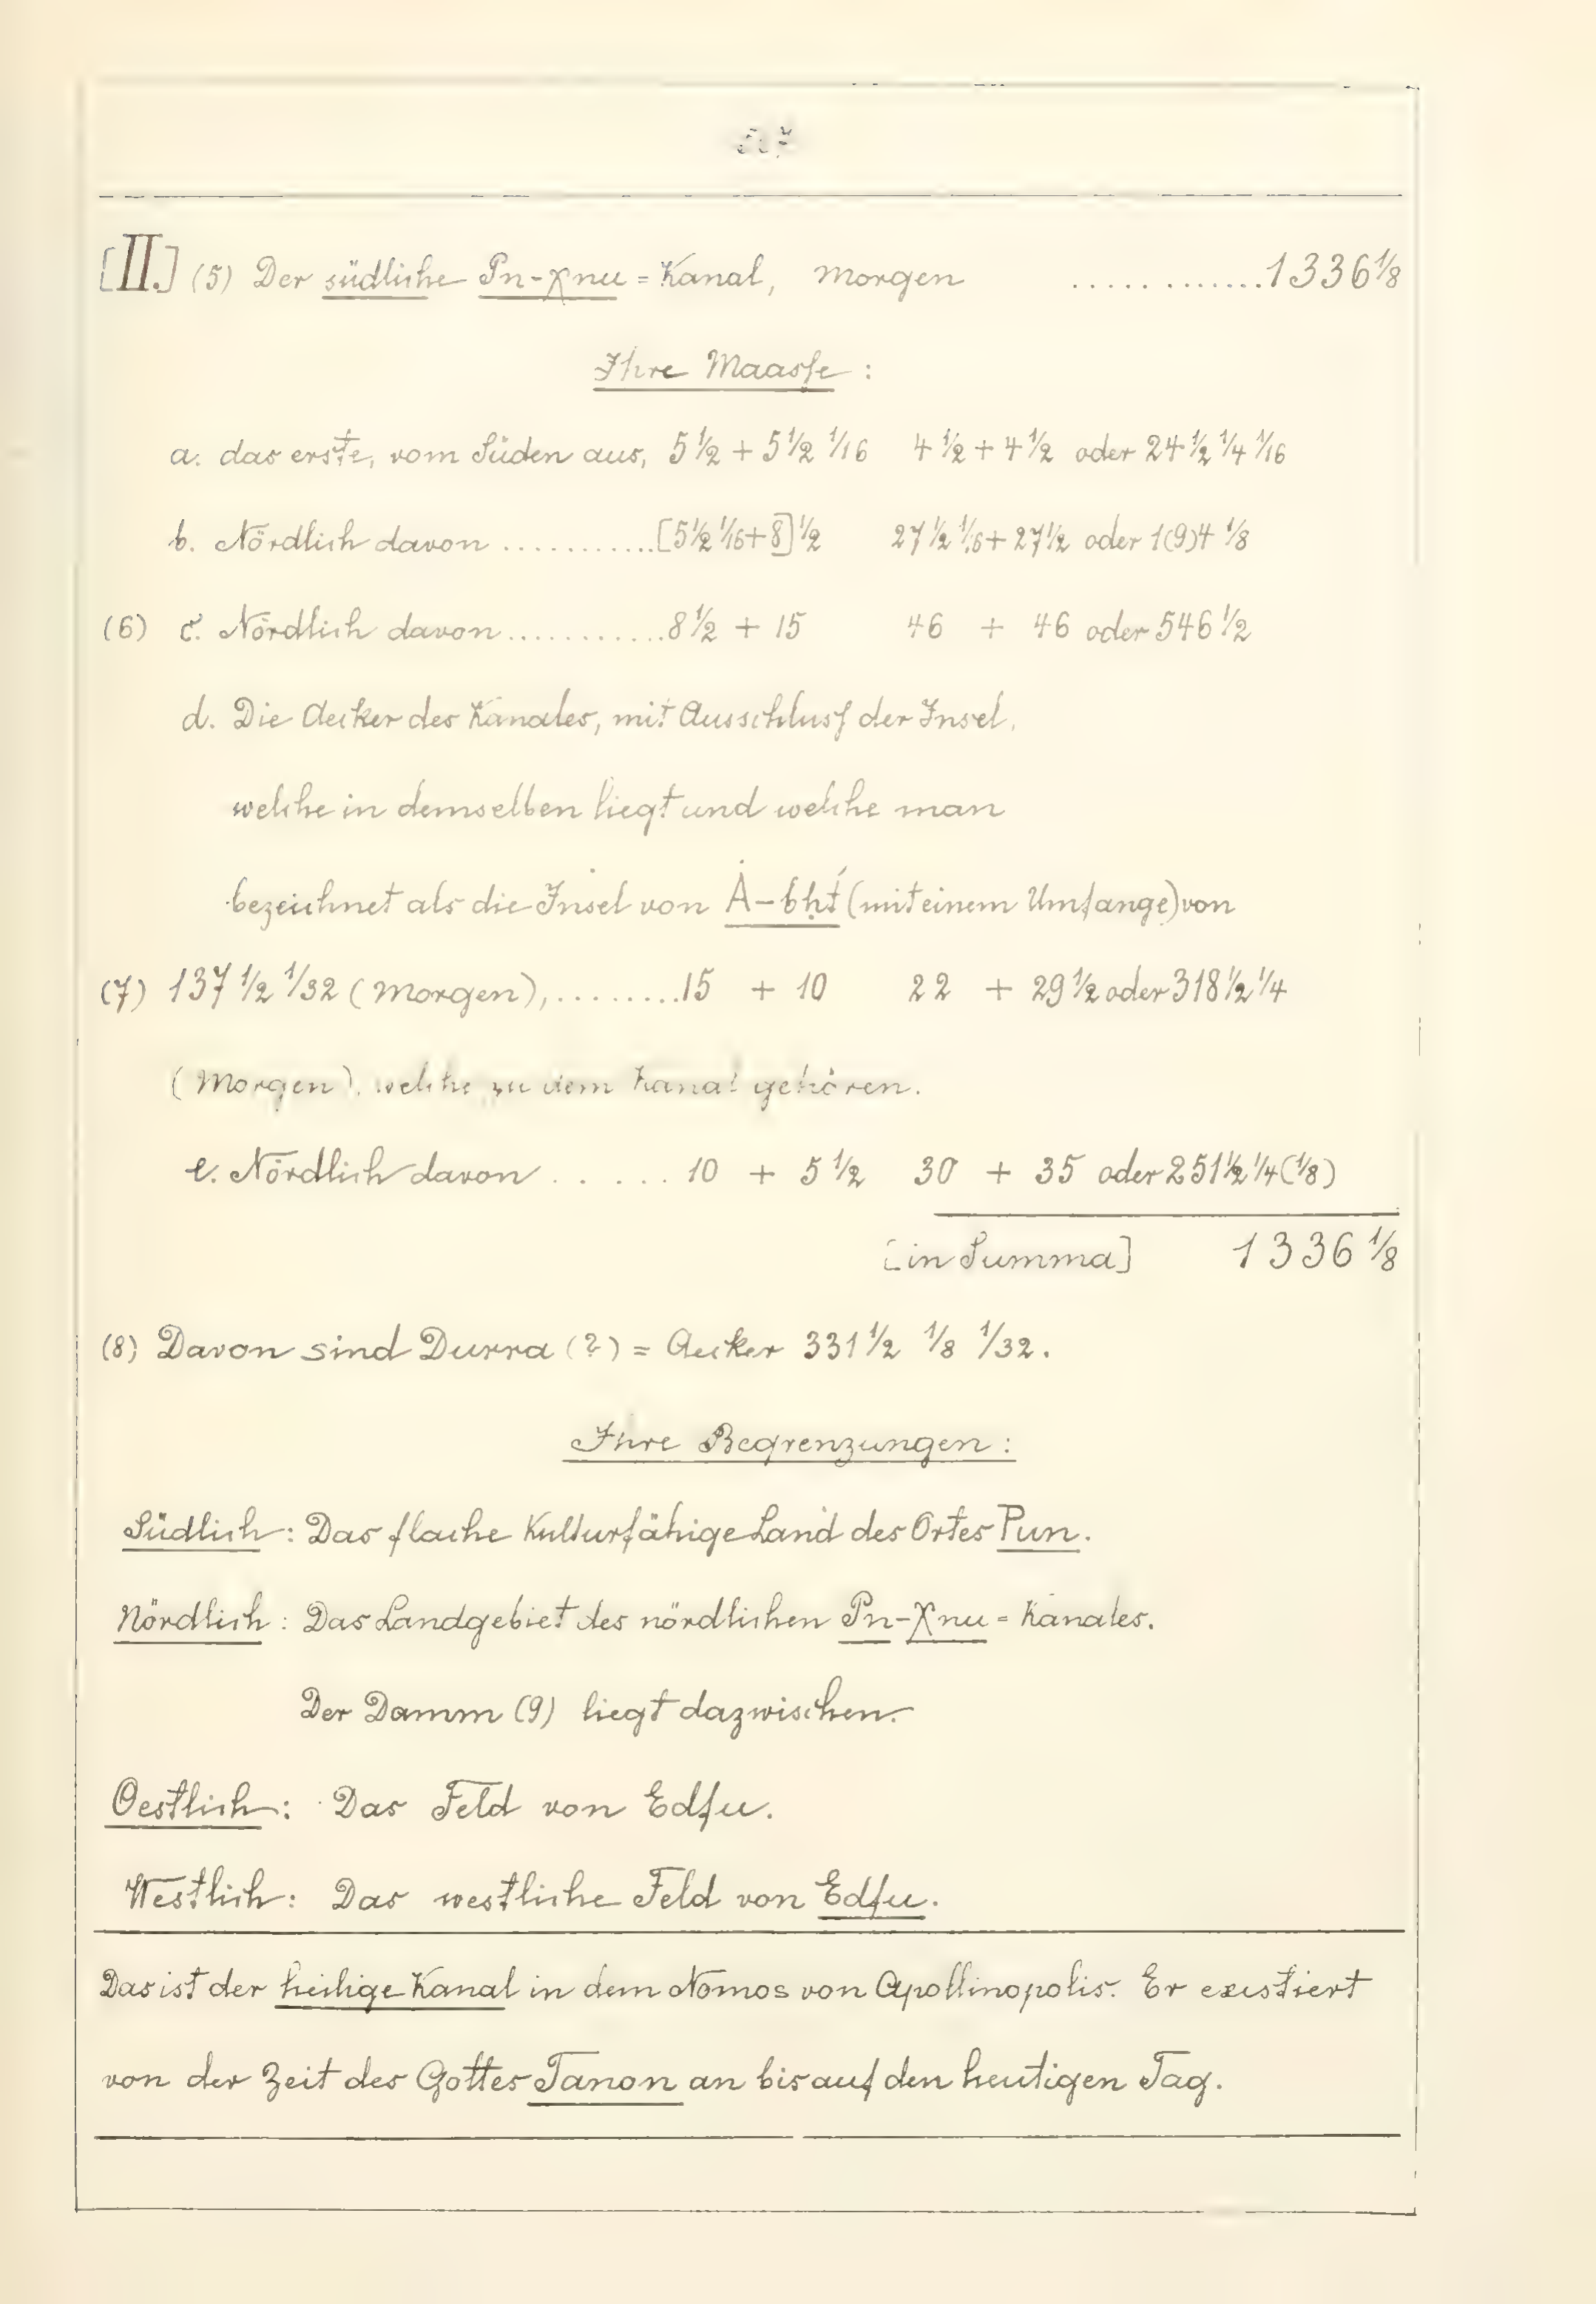 [II.] (5) Der südliche Pn-χnu = Kanal, Morgen .............1336 1/8
Ihre Maasse :
a. das erste, vom Süden aus, 5 1/2 + 5 1/2 1/16 4 1/2 + 4 1/2 oder 24 1/2 1/4 1/16
b. Nördlich davon ...........[5 1/2 1/16 + 8] 1/2 27 1/2 1/16 + 27 1/2 oder 1(9)4 1/8
(6) c. Nördlich davon............8 1/2 + 15 46 + 46 oder 546 1/2
d. Die Aecker des Kanales, mit Ausschluss der Insel,
welche in demselben liegt und welche man
bezeichnet als die Insel von Ȧ-bḥt́ (mit einem Umfange) von
(7) 137 1/2 1/32 (Morgen),.........15 + 10 22 + 29 1/2 oder 318 1/2 1/4
(Morgen), welche zu dem Kanal gehören.
e. Nördlich davon ...... 10 + 5 1/2 30 + 35 oder 251 1/2 1/4 (1/8)
[in Summa] 1336 1/8
(8) Davon sind Durra (?) = Aecker 331 1/2 1/8 1/32.
Ihre Begrenzungen :
Südlich : Das flache Kulturfähige Land des Ortes Pun.
Nördlich : Das Landgebiet des nördlichen Pn-χnu = Kanales.
Der Damm (9) liegt dazwischen.
Oestlich : Das Feld von Edfu.
Westlich : Das westliche Feld von Edfu.
Das ist der heilige Kanal in dem Nomos von Apollinopolis. Er existiert
von der Zeit des Gottes Tanon an bis auf den heutigen Tag.